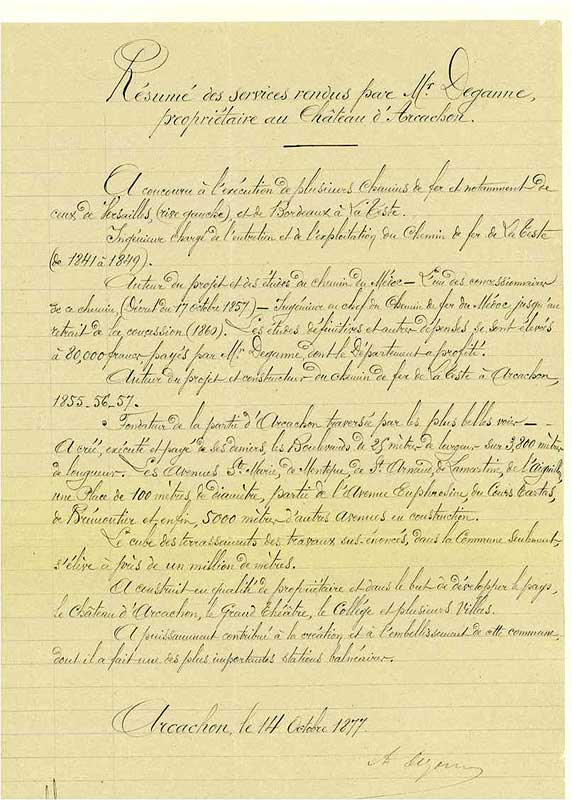 Résumé des services rendus par Mr. Deganne,
propriétaire au Château d'Arcachon.
A concouru à l'exécution de plusieurs Chemins de fer et notamment de
ceux de Versailles, (rive gauche), et de Bordeaux à La Teste.
Ingénieur chargé de l'entretien et de l'exploitation du Chemin de fer de La Teste
(de 1841 à 1849).
Auteur du projet et des études du chemin du Médoc — L'un des concessionnaires
de ce chemin, (Décret du 17 Octobre 1857) — Ingénieur en chef du Chemin de fer du Médoc, jusqu'au
retrait de la concession (1860). Les études définitives et autres dépenses, se sont élevées
à 80,000 francs payés par Mr. Deganne, dont le Département a profité.
Auteur du projet et constructeur du chemin de fer de La Teste à Arcachon,
1855-56-57.
Fondateur de la partie d'Arcachon traversée par les plus belles voies —
A créé, exécuté et payé de ses deniers, les Boulevards de 25 mètres de largeur sur 3,800 mètres
de longueur. Les Avenues Ste. Marie, de Mentque, de St. Arnaud, de Lamartine, de l'Aiguille,
une Place de 100 mètres, de diamètre, partie de l'Avenue Euphrosine, du Cours Tartas,
de Brémontier et enfin, 5000 mètres d'autres avenues en construction.
Le cube des terrassements des travaux sus-énoncés, dans la Commune seulement,
s'élève à près de un million de mètres.
A construit en qualité de propriétaire et dans le but de développer le pays,
le Château d'Arcachon, le Grand Théâtre, le Collège et plusieurs Villas.
A puissamment contribué à la création et à l'embellissement de cette commune,
dont il a fait une des plus importantes stations balnéaires.
Arcachon, le 14 Octobre 1877.
A Deganne